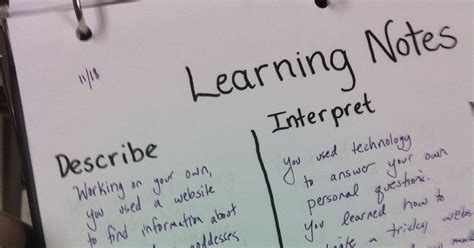 11/18
Learning Notes
Describe
Working on your own,
you used a website
to find information about
goddesses
Interpret
you used technology
to answer your own
personal questions.
you learned how to
a tricky